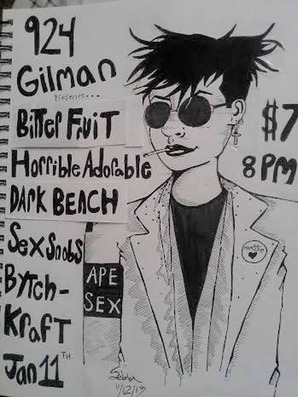 924
Gilman
Presents...
Bitter Fruit
Horrible Adorable
DARK BEACH
Sex Snobs
Bytch-
Kraft
Jan 11TH
APE
SEX
$7
8PM
11/12/13